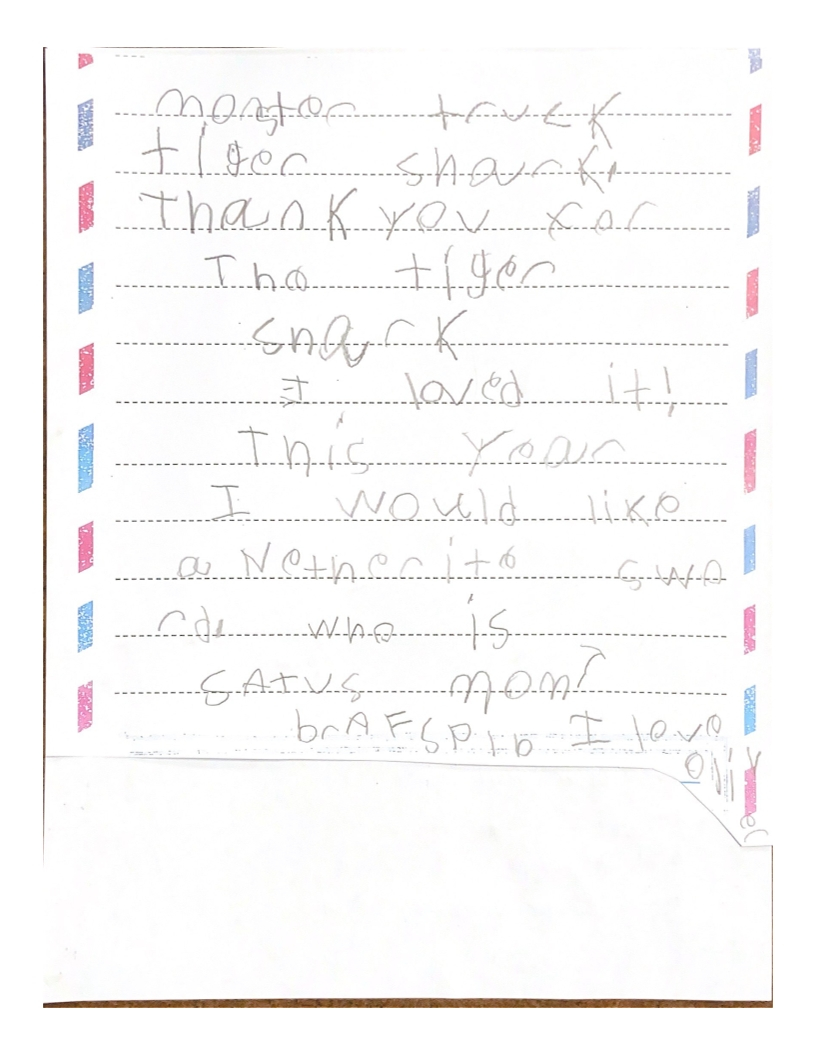 monster truck
tiger shark.
Thank you for
The tiger
shark
I loved it!
This year
I would like
a Netherite swo
rd. who is
SAtUS mom?
I love
oliver